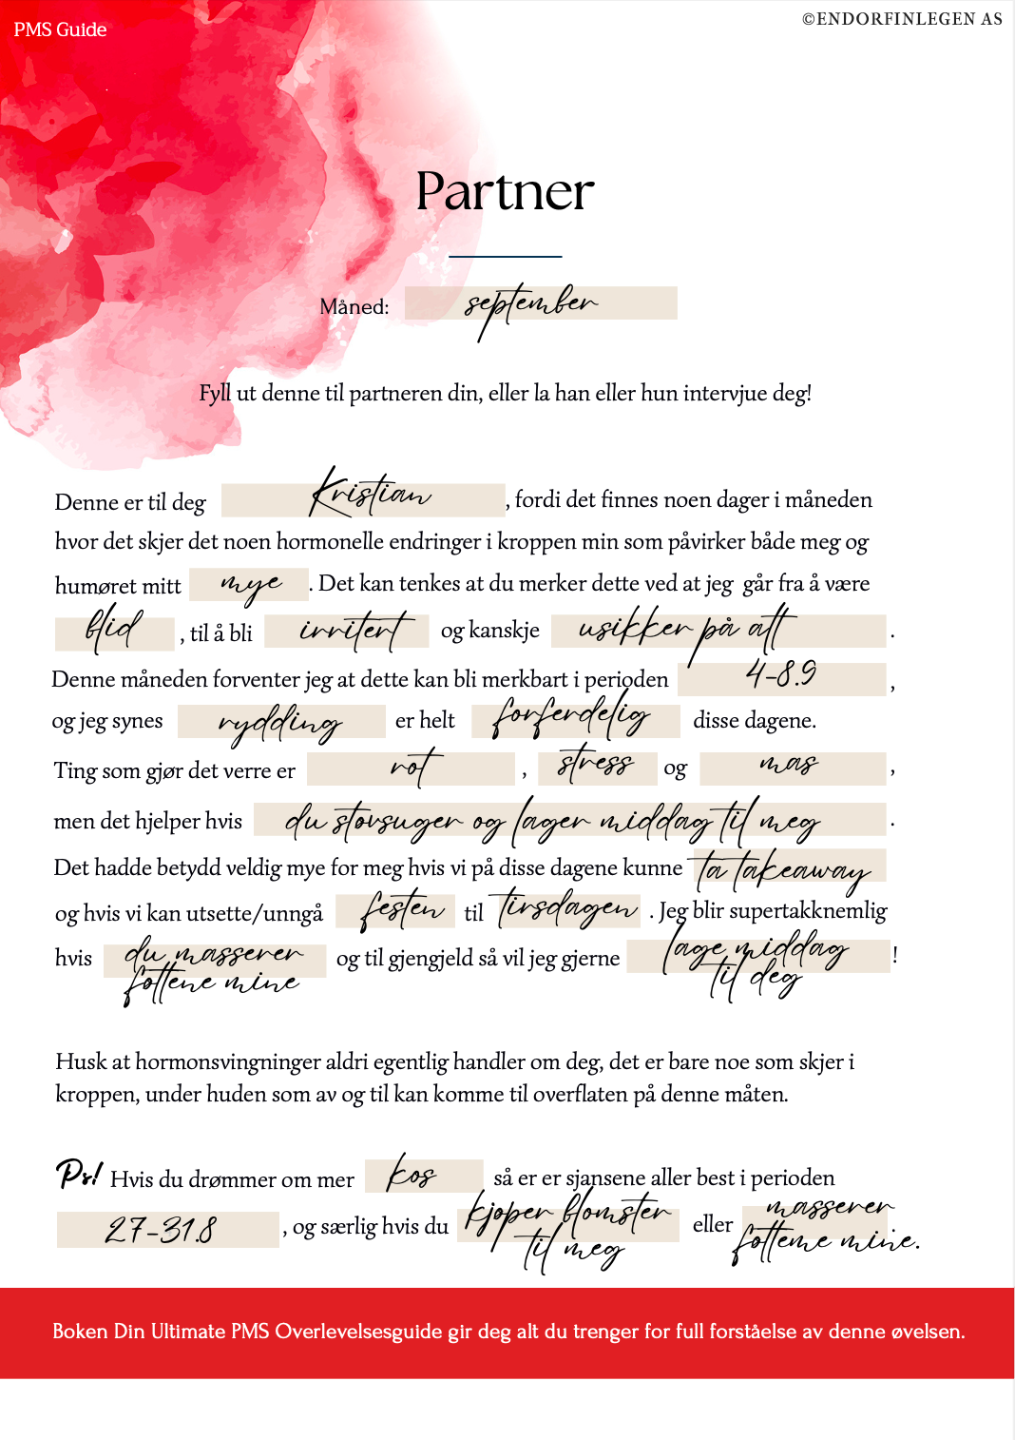 PMS Guide
©ENDORFINLEGEN AS
Partner
Måned: september
Fyll ut denne til partneren din, eller la han eller hun intervjue deg!
Denne er til deg Kristian, fordi det finnes noen dager i måneden
hvor det skjer det noen hormonelle endringer i kroppen min som påvirker både meg og
humøret mitt mye. Det kan tenkes at du merker dette ved at jeg går fra å være
blid, til å bli irritert og kanskje usikker på alt.
Denne måneden forventer jeg at dette kan bli merkbart i perioden 4-8.9,
og jeg synes rydding er helt forferdelig disse dagene.
Ting som gjør det verre er rot, stress og mas,
men det hjelper hvis du stovsuger og lager middag til meg.
Det hadde betydd veldig mye for meg hvis vi på disse dagene kunne ta takeaway
og hvis vi kan utsette/unngå festen til tirsdagen. Jeg blir supertakknemlig
hvis du masserer og til gjengjeld så vil jeg gjerne lage middag!
fottene mine til deg
Husk at hormonsvingninger aldri egentlig handler om deg, det er bare noe som skjer i
kroppen, under huden som av og til kan komme til overflaten på denne måten.
Ps! Hvis du drømmer om mer kos så er er sjansene aller best i perioden
27-31.8, og særlig hvis du kjoper blomster eller masserer
til meg fottene mine.
Boken Din Ultimate PMS Overlevelsesguide gir deg alt du trenger for full forståelse av denne øvelsen.